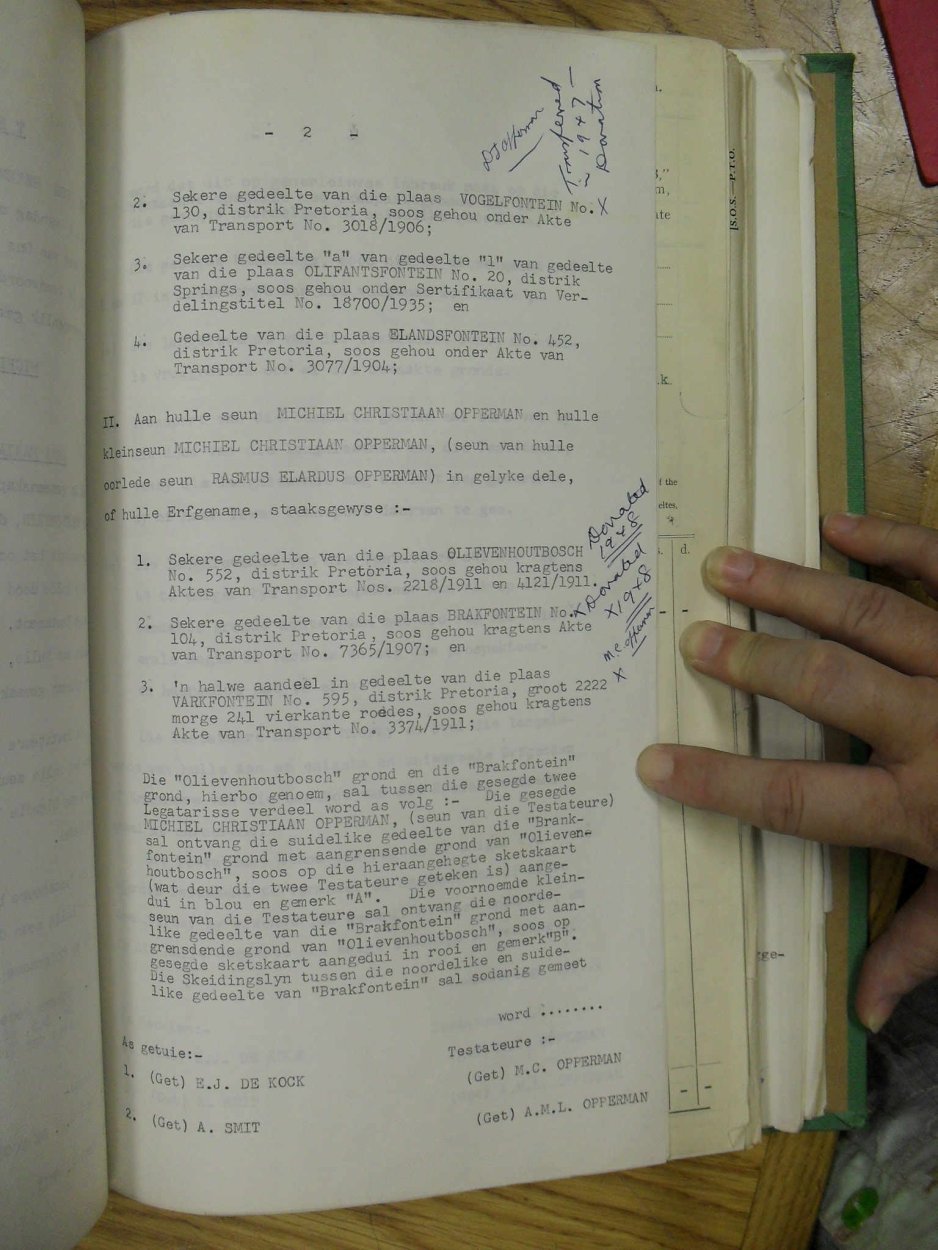 - 2 -
DJ Opperman
Transferred
in 1947 —
Donation
2. Sekere gedeelte van die plaas VOGELFONTEIN No. X
130, distrik Pretoria, soos gehou onder Akte
van Transport No. 3018/1906;
3. Sekere gedeelte "a" van gedeelte "1" van gedeelte
van die plaas OLIFANTSFONTEIN No. 20, distrik
Springs, soos gehou onder Sertifikaat van Ver-
delingstitel No. 18700/1935; en
4. Gedeelte van die plaas ELANDSFONTEIN No. 452,
distrik Pretoria, soos gehou onder Akte van
Transport No. 3077/1904;
II. Aan hulle seun MICHIEL CHRISTIAAN OPPERMAN en hulle
kleinseun MICHIEL CHRISTIAAN OPPERMAN, (seun van hulle
oorlede seun RASMUS ELARDUS OPPERMAN) in gelyke dele,
of hulle Erfgename, staaksgewyse :-
1. Sekere gedeelte van die plaas OLIEVENHOUTBOSCH
No. 552, distrik Pretoria, soos gehou kragtens
Aktes van Transport Nos. 2218/1911 en 4121/1911.
Donated
1948
2. Sekere gedeelte van die plaas BRAKFONTEIN No. X
104, distrik Pretoria, soos gehou kragtens Akte
van Transport No. 7365/1907; en
Donated
X 1948
M.C. Opperman
3. 'n halwe aandeel in gedeelte van die plaas
VARKFONTEIN No. 595, distrik Pretoria, groot 2222 X
morge 241 vierkante roedes, soos gehou kragtens
Akte van Transport No. 3374/1911;
Die "Olievenhoutbosch" grond en die "Brakfontein"
grond, hierbo genoem, sal tussen die gesegde twee
Legatarisse verdeel word as volg :- Die gesegde
MICHIEL CHRISTIAAN OPPERMAN, (seun van die Testateure)
sal ontvang die suidelike gedeelte van die "Brank-
fontein" grond met aangrensende grond van "Olieven-
houtbosch", soos op die hieraangehegte sketskaart
(wat deur die twee Testateure geteken is) aange-
dui in blou en gemerk "A". Die voornoemde klein-
seun van die Testateure sal ontvang die noorde-
like gedeelte van die "Brakfontein" grond met aan-
grensdende grond van "Olievenhoutbosch", soos op
gesegde sketskaart aangedui in rooi en gemerk"B".
Die Skeidingslyn tussen die noordelike en suide-
like gedeelte van "Brakfontein" sal sodanig gemeet
word ........
As getuie:-
Testateure :-
1. (Get) E.J. DE KOCK
(Get) M.C. OPPERMAN
2. (Get) A. SMIT
(Get) A.M.L. OPPERMAN
S.O.S.—P.T.O.
f the
eltes.
d.
gge-